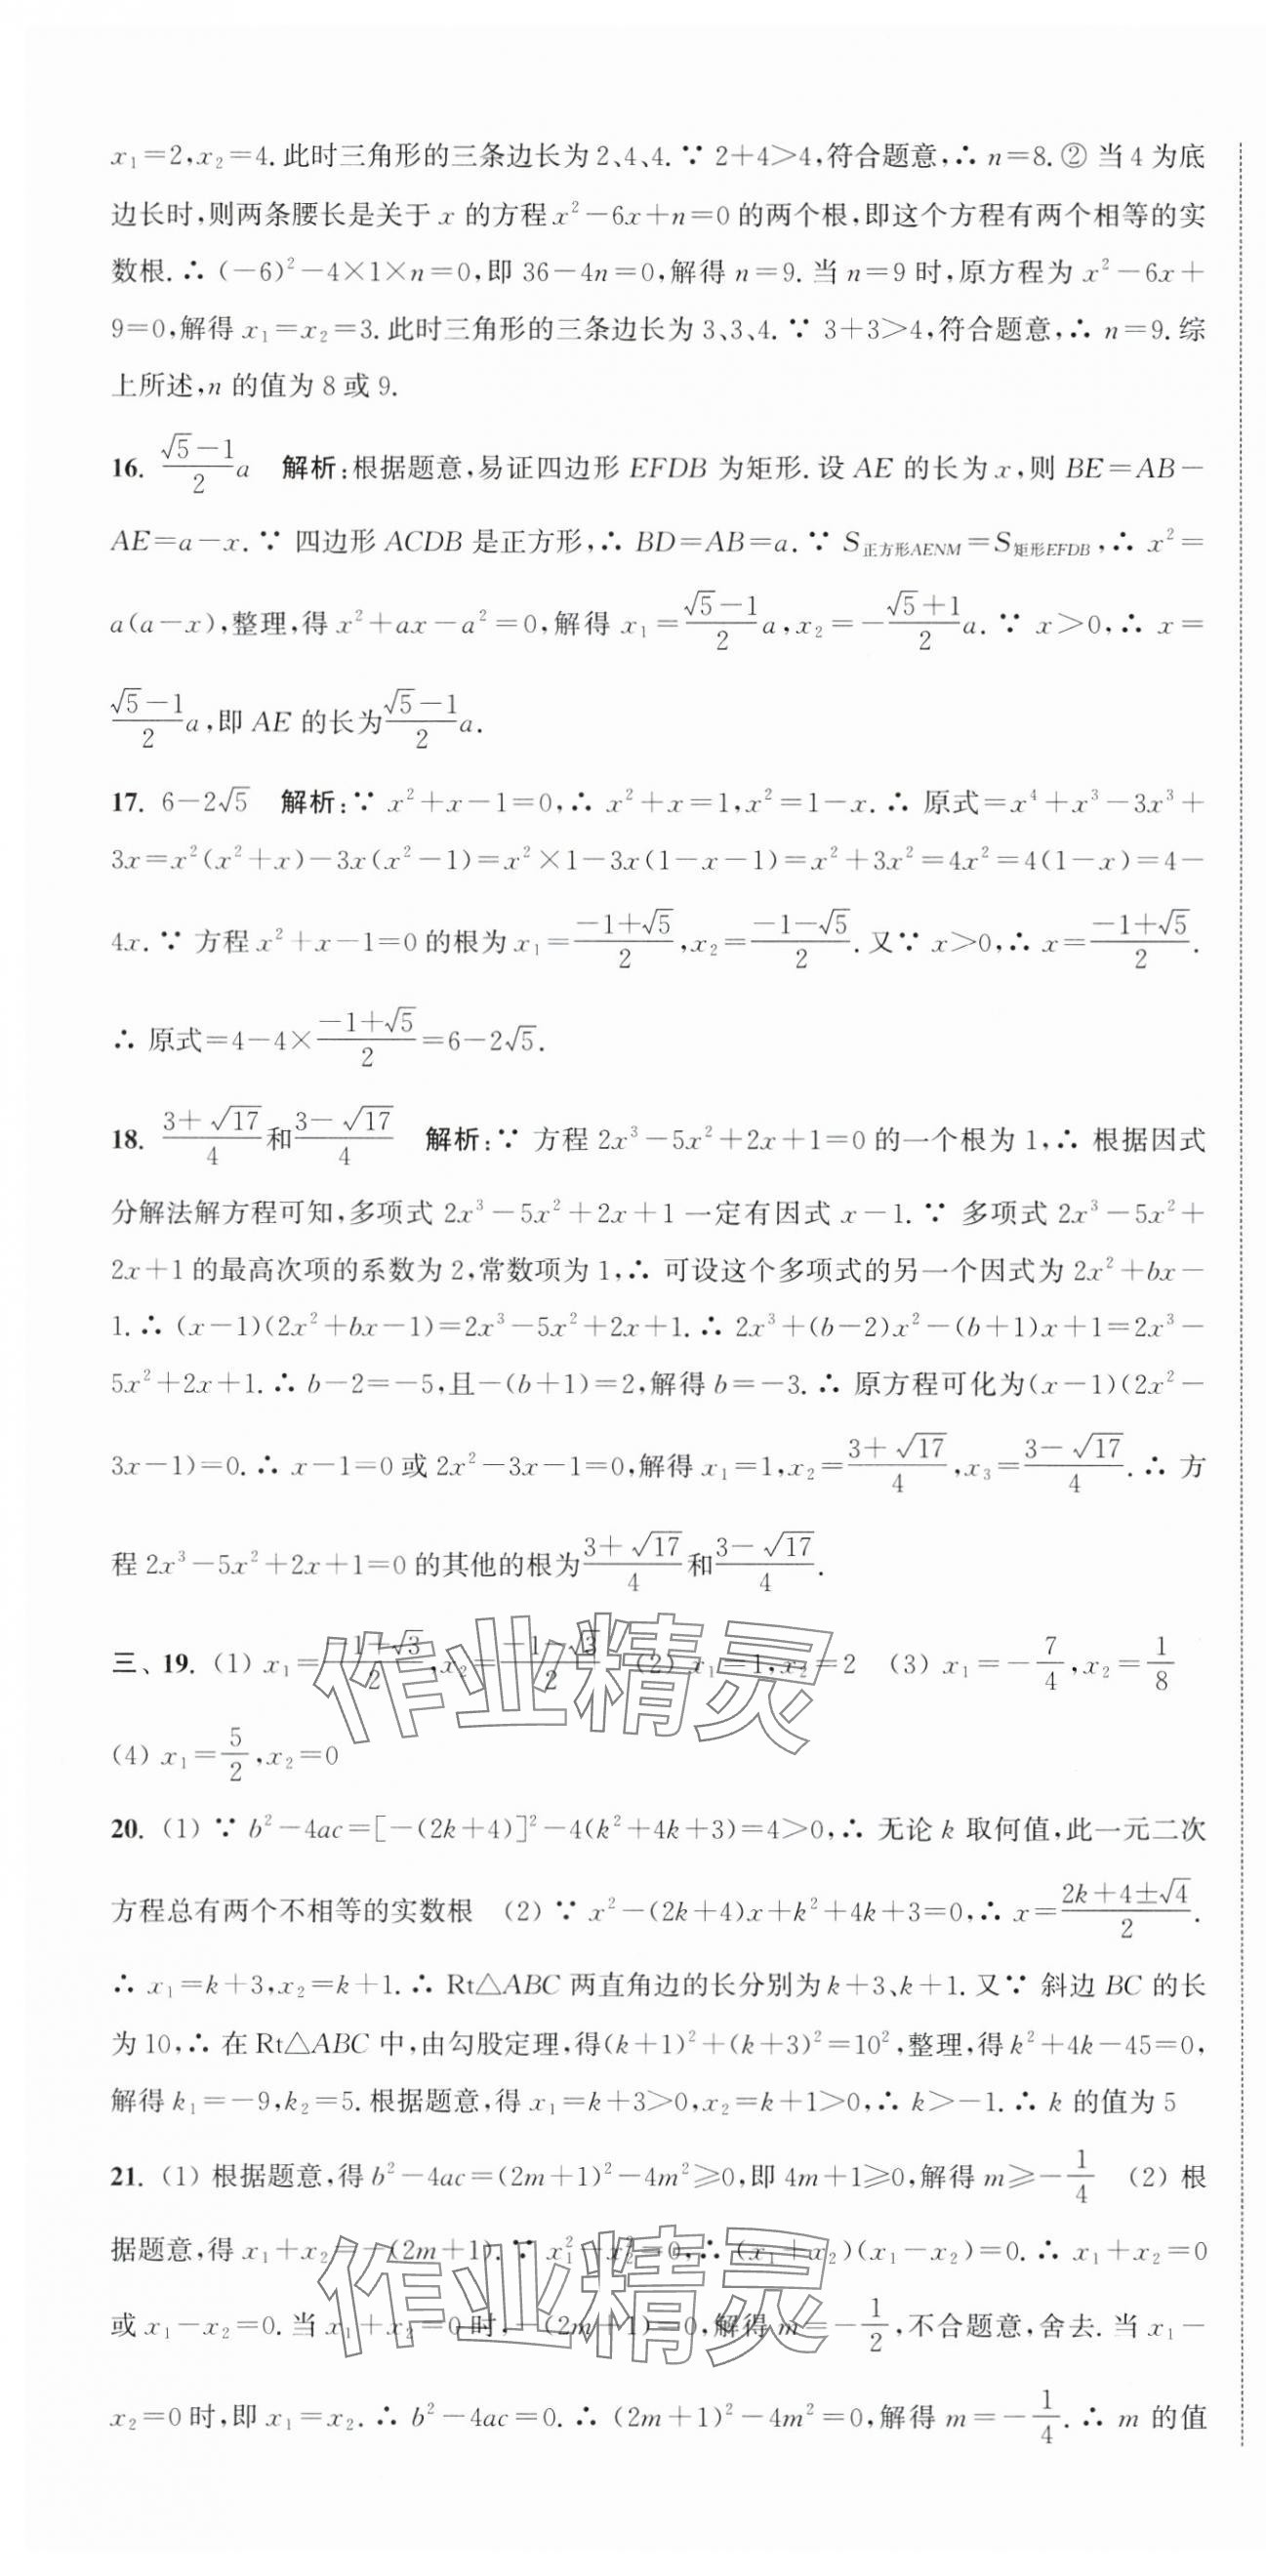 x₁=2,x₂=4.此时三角形的三条边长为2、4、4.∵ 2+4>4,符合题意,∴ n=8.② 当4为底
边长时,则两条腰长是关于 x 的方程x²-6x+n=0的两个根,即这个方程有两个相等的实
数根.∴ (-6)²-4×1×n=0,即 36-4n=0,解得 n=9.当 n=9 时,原方程为 x²-6x+
9=0,解得 x₁=x₂=3.此时三角形的三条边长为 3、3、4.∵ 3+3>4,符合题意,∴ n=9.综
上所述,n 的值为 8 或 9.
16. (√5-1)/2 a 解析:根据题意,易证四边形 EFDB 为矩形.设 AE 的长为 x,则 BE=AB-
AE=a-x.∵ 四边形 ACDB 是正方形,∴ BD=AB=a.∵ S正方形AENM=S矩形EFDB,∴ x²=
a(a-x),整理,得 x²+ax-a²=0,解得 x₁=(√5-1)/2 a,x₂=-(√5+1)/2 a.∵ x>0,∴ x=
(√5-1)/2 a,即 AE 的长为(√5-1)/2 a.
17. 6-2√5 解析:∵ x²+x-1=0,∴ x²+x=1,x²=1-x.∴ 原式=x⁴+x³-3x³+
3x=x²(x²+x)-3x(x²-1)=x²×1-3x(1-x-1)=x²+3x²=4x²=4(1-x)=4-
4x.∵ 方程 x²+x-1=0 的根为 x₁=(-1+√5)/2,x₂=(-1-√5)/2.又∵ x>0,∴ x=(-1+√5)/2.
∴ 原式=4-4×(-1+√5)/2=6-2√5.
18. (3+√17)/4和(3-√17)/4 解析:∵ 方程 2x³-5x²+2x+1=0 的一个根为 1,∴ 根据因式
分解法解方程可知,多项式 2x³-5x²+2x+1 一定有因式 x-1.∵ 多项式 2x³-5x²+
2x+1 的最高次项的系数为 2,常数项为 1,∴ 可设这个多项式的另一个因式为 2x²+bx-
1.∴ (x-1)(2x²+bx-1)=2x³-5x²+2x+1.∴ 2x³+(b-2)x²-(b+1)x+1=2x³-
5x²+2x+1.∴ b-2=-5,且-(b+1)=2,解得 b=-3.∴ 原方程可化为(x-1)(2x²-
3x-1)=0.∴ x-1=0 或 2x²-3x-1=0,解得 x₁=1,x₂=(3+√17)/4,x₃=(3-√17)/4.∴ 方
程 2x³-5x²+2x+1=0 的其他的根为(3+√17)/4和(3-√17)/4.
三、19. (1) x₁= ,x₂= (2) x₁=1,x₂=2 (3) x₁=-7/4,x₂=1/8
(4) x₁=5/2,x₂=0
20. (1) ∵ b²-4ac=[-(2k+4)]²-4(k²+4k+3)=4>0,∴ 无论 k 取何值,此一元二次
方程总有两个不相等的实数根 (2) ∵ x²-(2k+4)x+k²+4k+3=0,∴ x=(2k+4±√4)/2.
∴ x₁=k+3,x₂=k+1.∴ Rt△ABC 两直角边的长分别为 k+3、k+1.又∵ 斜边 BC 的长
为 10,∴ 在 Rt△ABC 中,由勾股定理,得(k+1)²+(k+3)²=10²,整理,得 k²+4k-45=0,
解得 k₁=-9,k₂=5.根据题意,得 x₁=k+3>0,x₂=k+1>0,∴ k>-1.∴ k 的值为 5
21. (1) 根据题意,得 b²-4ac=(2m+1)²-4m²≥0,即 4m+1≥0,解得 m≥-1/4 (2) 根
据题意,得 x₁+x₂=-(2m+1).∵ x₁²-x₂²=0,∴ (x₁+x₂)(x₁-x₂)=0.∴ x₁+x₂=0
或 x₁-x₂=0.当 x₁+x₂=0 时,-(2m+1)=0,解得 m=-1/2,不合题意,舍去.当 x₁-
x₂=0 时,即 x₁=x₂.∴ b²-4ac=0.∴ (2m+1)²-4m²=0,解得 m=-1/4.∴ m 的值
作业精灵
作业精灵